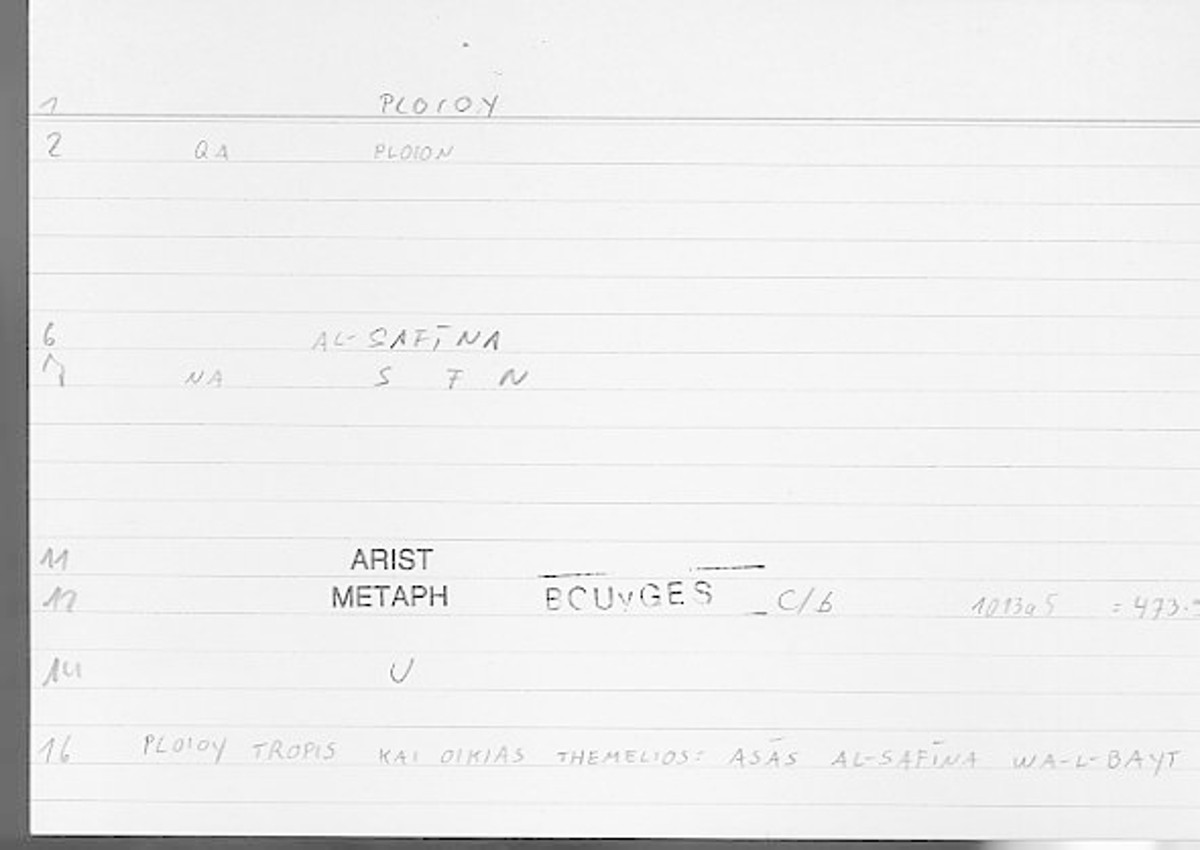 1 PLOIOY
2 QA PLOION
6 AL-SAFĪNA
7 NA S F N
11 ARIST
12 METAPH BOUYGES C/b 1013a5 = 473.
14 U
16 PLOIOY TROPIS KAI OIKIAS THEMELIOS: ASĀS AL-SAFĪNA WA-L-BAYT